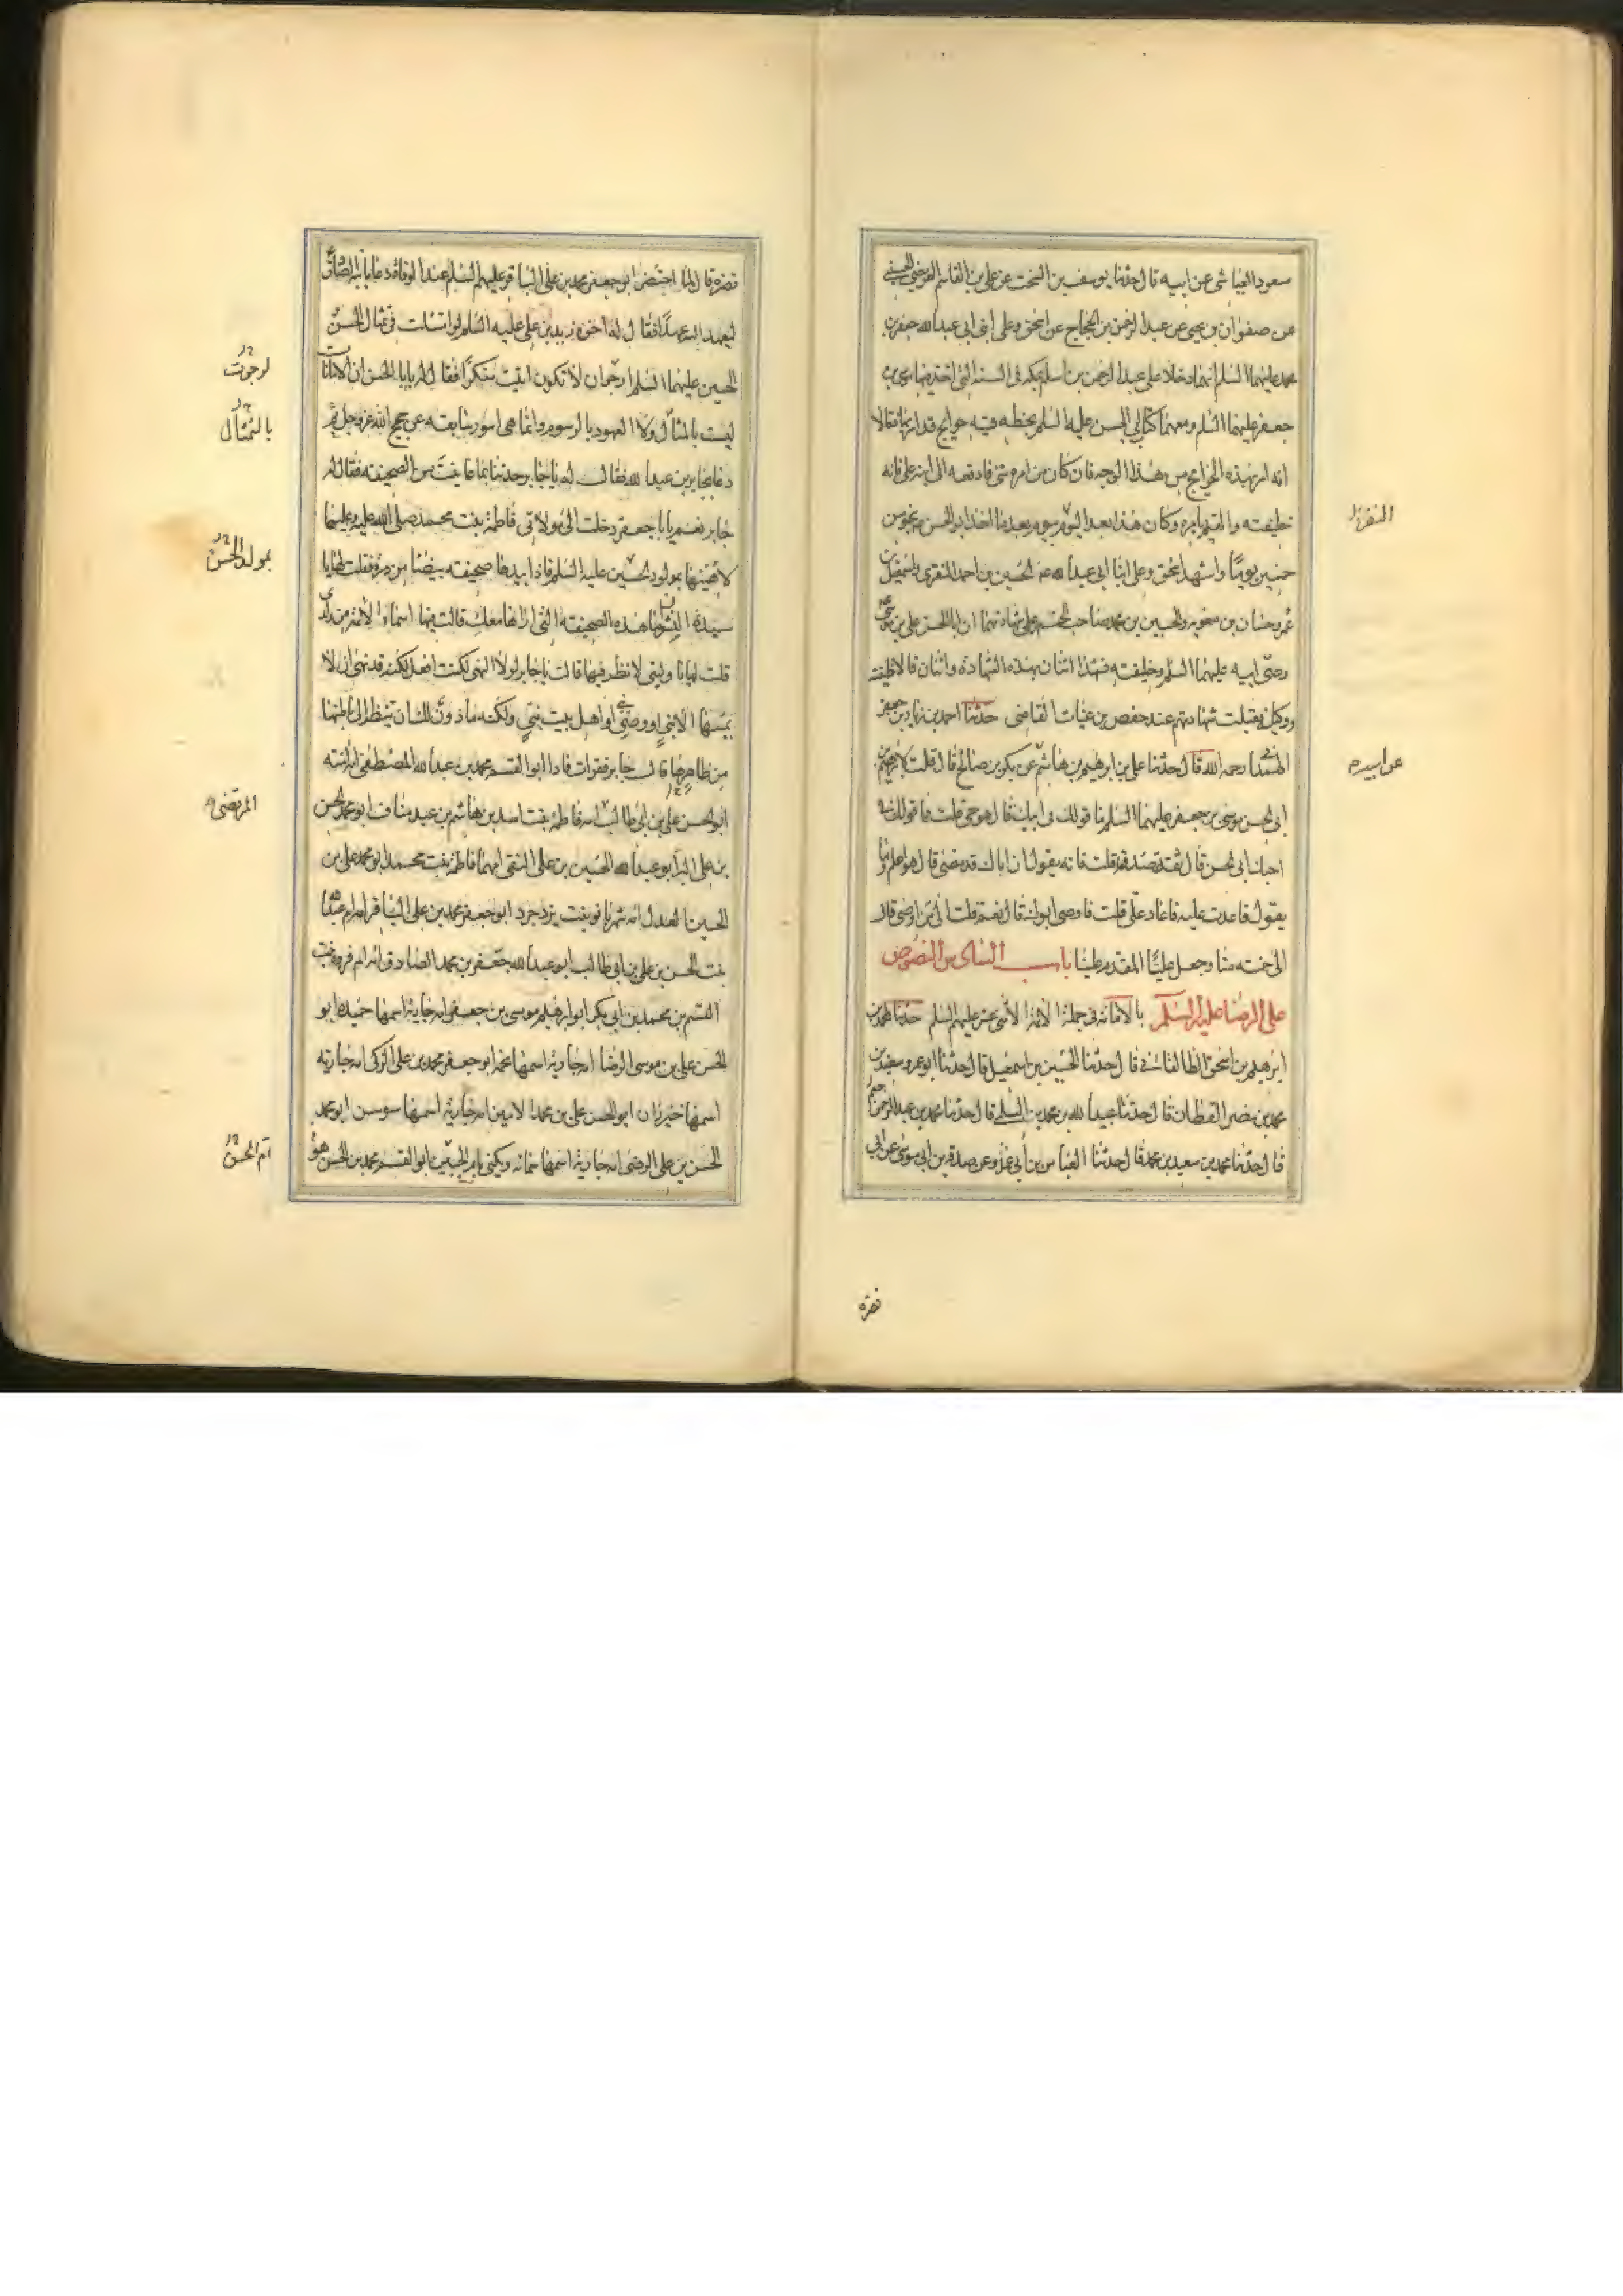 مسعود العياشى عن ابيه قال حدثنا يوسف بن السخت عن على بن القاسم العريضى الحسينى
عن صفوان بن يحيى عن عبد الرحمن بن الحجاج عن اسحق وعلى ابنى ابى عبد الله جعفر بن
محمد عليهما السلم انهما دخلا على عبد الرحمن بن اسلم بمكه فى السنة التى اخذ فيها موسى بن
جعفر عليهما السلم ومعهما كتاب ابى الحسن عليه السلم بخطه فيه حوايج قد امر بها فقالا
انه امر بهذه الحوايج من هذا الوجه فان كان من امره شئ فادفعه الى ابنه على فانه
خليفته والقيم بامره وكان هذا بعد النفر بيوم بعد ما اخذ ابو الحسن بنحو من
خمسين يوما واشهد اسحق وعلى ابنا ابى عبد الله عه الحسين بن احمد المنقرى واسمعيل بن
عمر وحسان بن معوية والحسين بن محمد صاحب الختم على شهادتهما ان ابا الحسن على بن موسى
وصى ابيه عليهما السلم وخليفته فشهد اثنان بهذه الشهادة واثنان قالا خليفته
ووكيله فقبلت شهادتهم عند حفص بن غياث القاضى حدثنا احمد بن زياد بن جعفر
الهمدانى رحمه الله قال حدثنا على بن ابرهيم بن هاشم عن بكر بن صالح قال قلت لابرهيم بن
ابى الحسن موسى بن جعفر عليهما السلم ما قولك فى ابيك قال هو حى قلت فما قولك فى
اخيك ابى الحسن قال ثقة صدوق قلت فانه يقول ان اباك قد مضى قال هو اعلم وما
يقول فاعدت عليه فاعاد على قلت فاوصى ابوك قال نعم قلت الى من اوصى قال
الى خمسة منا وجعل عليا المقدم علينا باب السادس النصوص
على الرضا عليه السلم بالامامة فى جملة الائمة الاثنى عشر عليهم السلم حدثنا محمد بن
ابرهيم بن اسحق الطالقانى قال حدثنا الحسين بن اسمعيل قال حدثنا ابو عمرو سعيد بن
محمد بن نصر القطان قال حدثنا عبيد الله بن محمد بن السلمى قال حدثنا محمد بن عبد الرحمن
قال حدثنا محمد بن سعيد بن محمد قال حدثنا العباس بن ابى عمرو عن صدقة بن ابى موسى عن ابى
النفر
عن ابيه
نضره
نضره قال لما احتضر ابو جعفر محمد بن على الباقر عليهم السلم عند الوفاة دعا بابنه الصادق
ليعهد اليه عهدا فقال له اخوه زيد بن على عليه السلم لو امتثلت فى تمثال الحسن و
الحسين عليهما السلم ارجو ان لا تكون اتيت منكرا فقال له يا ابا الحسن ان الامانات
ليست بالمثال ولا العهود بالرسوم وانما هى امور سابقه عن حجج الله عز وجل ثم
دعا بجابر بن عبد الله فقال له يا جابر حدثنا بما عاينت من الصحيفه فقال له
جابر نعم يا ابا جعفر دخلت الى مولاتى فاطمة بنت محمد صلى الله عليه وعليها
لاهنئها بمولود الحسين عليه السلم فاذا بيدها صحيفه بيضا من درة فقلت لها يا
سيدة النسوان ما هذه الصحيفه التى اراها معك قالت فيها اسماء الائمة من ولدى
قلت لها ناولينى لانظر فيها قالت يا جابر لولا النهى لكنت افعل لكنه قد نهى ان لا
يمسها الا نبى او وصى او اهل بيت نبى ولكنه ماذون لك ان تنظر الى باطنها
من ظاهرها قال جابر فقرات فاذا ابو القسم محمد بن عبد الله المصطفى امه آمنه
ابو الحسن على بن ابى طالب امه فاطمة بنت اسد بن هاشم بن عبد مناف ابو محمد الحسن
بن على البر ابو عبد الله الحسين بن على التقى امهما فاطمة بنت محمد ابو محمد على بن
الحسين العدل امه شهربانو بنت يزدجرد ابو جعفر محمد بن على الباقر امه ام عبد الله
بنت الحسن بن على بن ابى طالب ابو عبد الله جعفر بن محمد الصادق امه ام فروة بنت
القسم بن محمد بن ابى بكر ابو ابرهيم موسى بن جعفر امه جارية اسمها حميدة ابو
الحسن على بن موسى الرضا امه جارية اسمها نجمه ابو جعفر محمد بن على الزكى امه جاريه
اسمها خيزران ابو الحسن على بن محمد الامين امه جارية اسمها سوسن ابو محمد
الحسن بن على الرضى امه جارية اسمها سمانه ويكنى بام الحسين ابو القسم محمد بن الحسن هو
لرجوت
بالتمثال
بمولد الحسن
المرتضى
ام الحسن